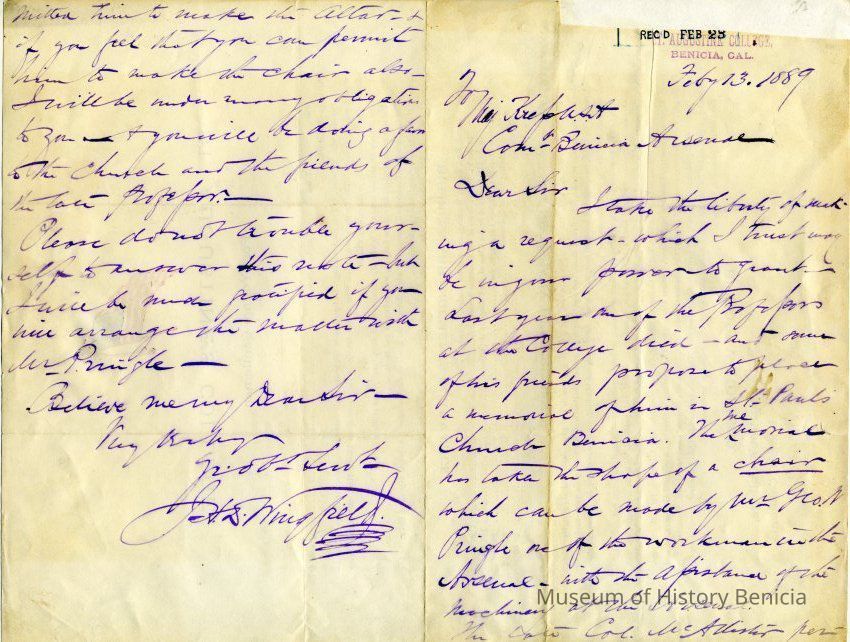 REC'D FEB 25
ST. AUGUSTINE COLLEGE,
BENICIA, CAL.
Feby 13. 1889
To
Maj
Comdt Benicia Arsenal
Dear Sir
I take the liberty of mak-
ing a request - which I trust may
be in your power to grant -
Last year one of the Professors
at the College died - and some
of his friends propose to place
a memorial of him in St. Paul's
Church Benicia. The memorial
has taken the shape of a chair
which can be made by Mr Geo
Pringle one of the workman in the
Arsenal - with the assistance of the
machinery at the Arsenal.
The late Col. McAllister per-
mitted him to make the Altar - &
if you feel that you can permit
him to make the chair also -
I will be under many obligations
to you - & you will be doing a favor
to the Church and the friends of
the late Professor. -
Please do not trouble your-
self to answer this note - but
I will be much gratified if you
will arrange the matter with
Mr Pringle -
Believe me my Dear Sir -
Very truly
Yr. Obt. Servt
Wingfield.
Museum of History Benicia